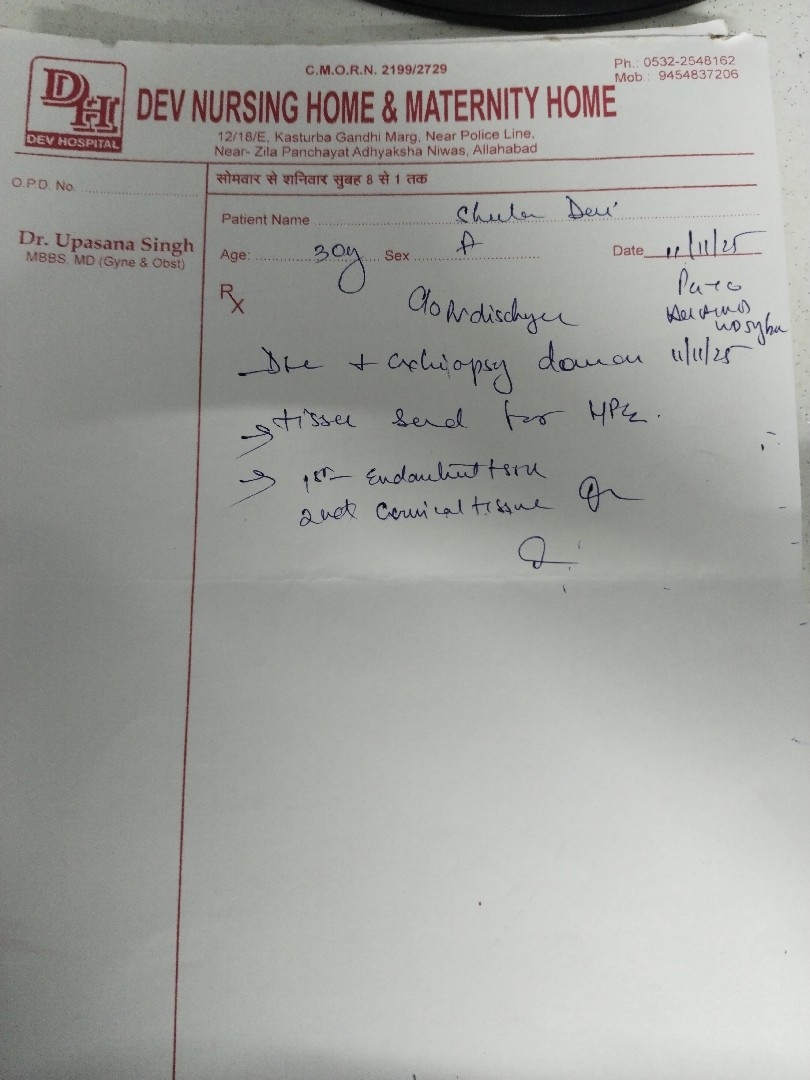 C.M.O.R.N. 2199/2729
Ph.: 0532-2548162
Mob.: 9454837206
DH
DEV HOSPITAL
DEV NURSING HOME & MATERNITY HOME
12/18/E, Kasturba Gandhi Marg, Near Police Line,
Near- Zila Panchayat Adhyaksha Niwas, Allahabad
O.P.D. No.
सोमवार से शनिवार सुबह 8 से 1 तक
Dr. Upasana Singh
MBBS. MD (Gyne & Obst)
Patient Name Devi
Age: 30y Sex F Date 11/11/25
Rx
C/o discharge
+ biopsy 11/11/25
→ tissue send for HPE.
→ 1st
2nd Cervical tissue